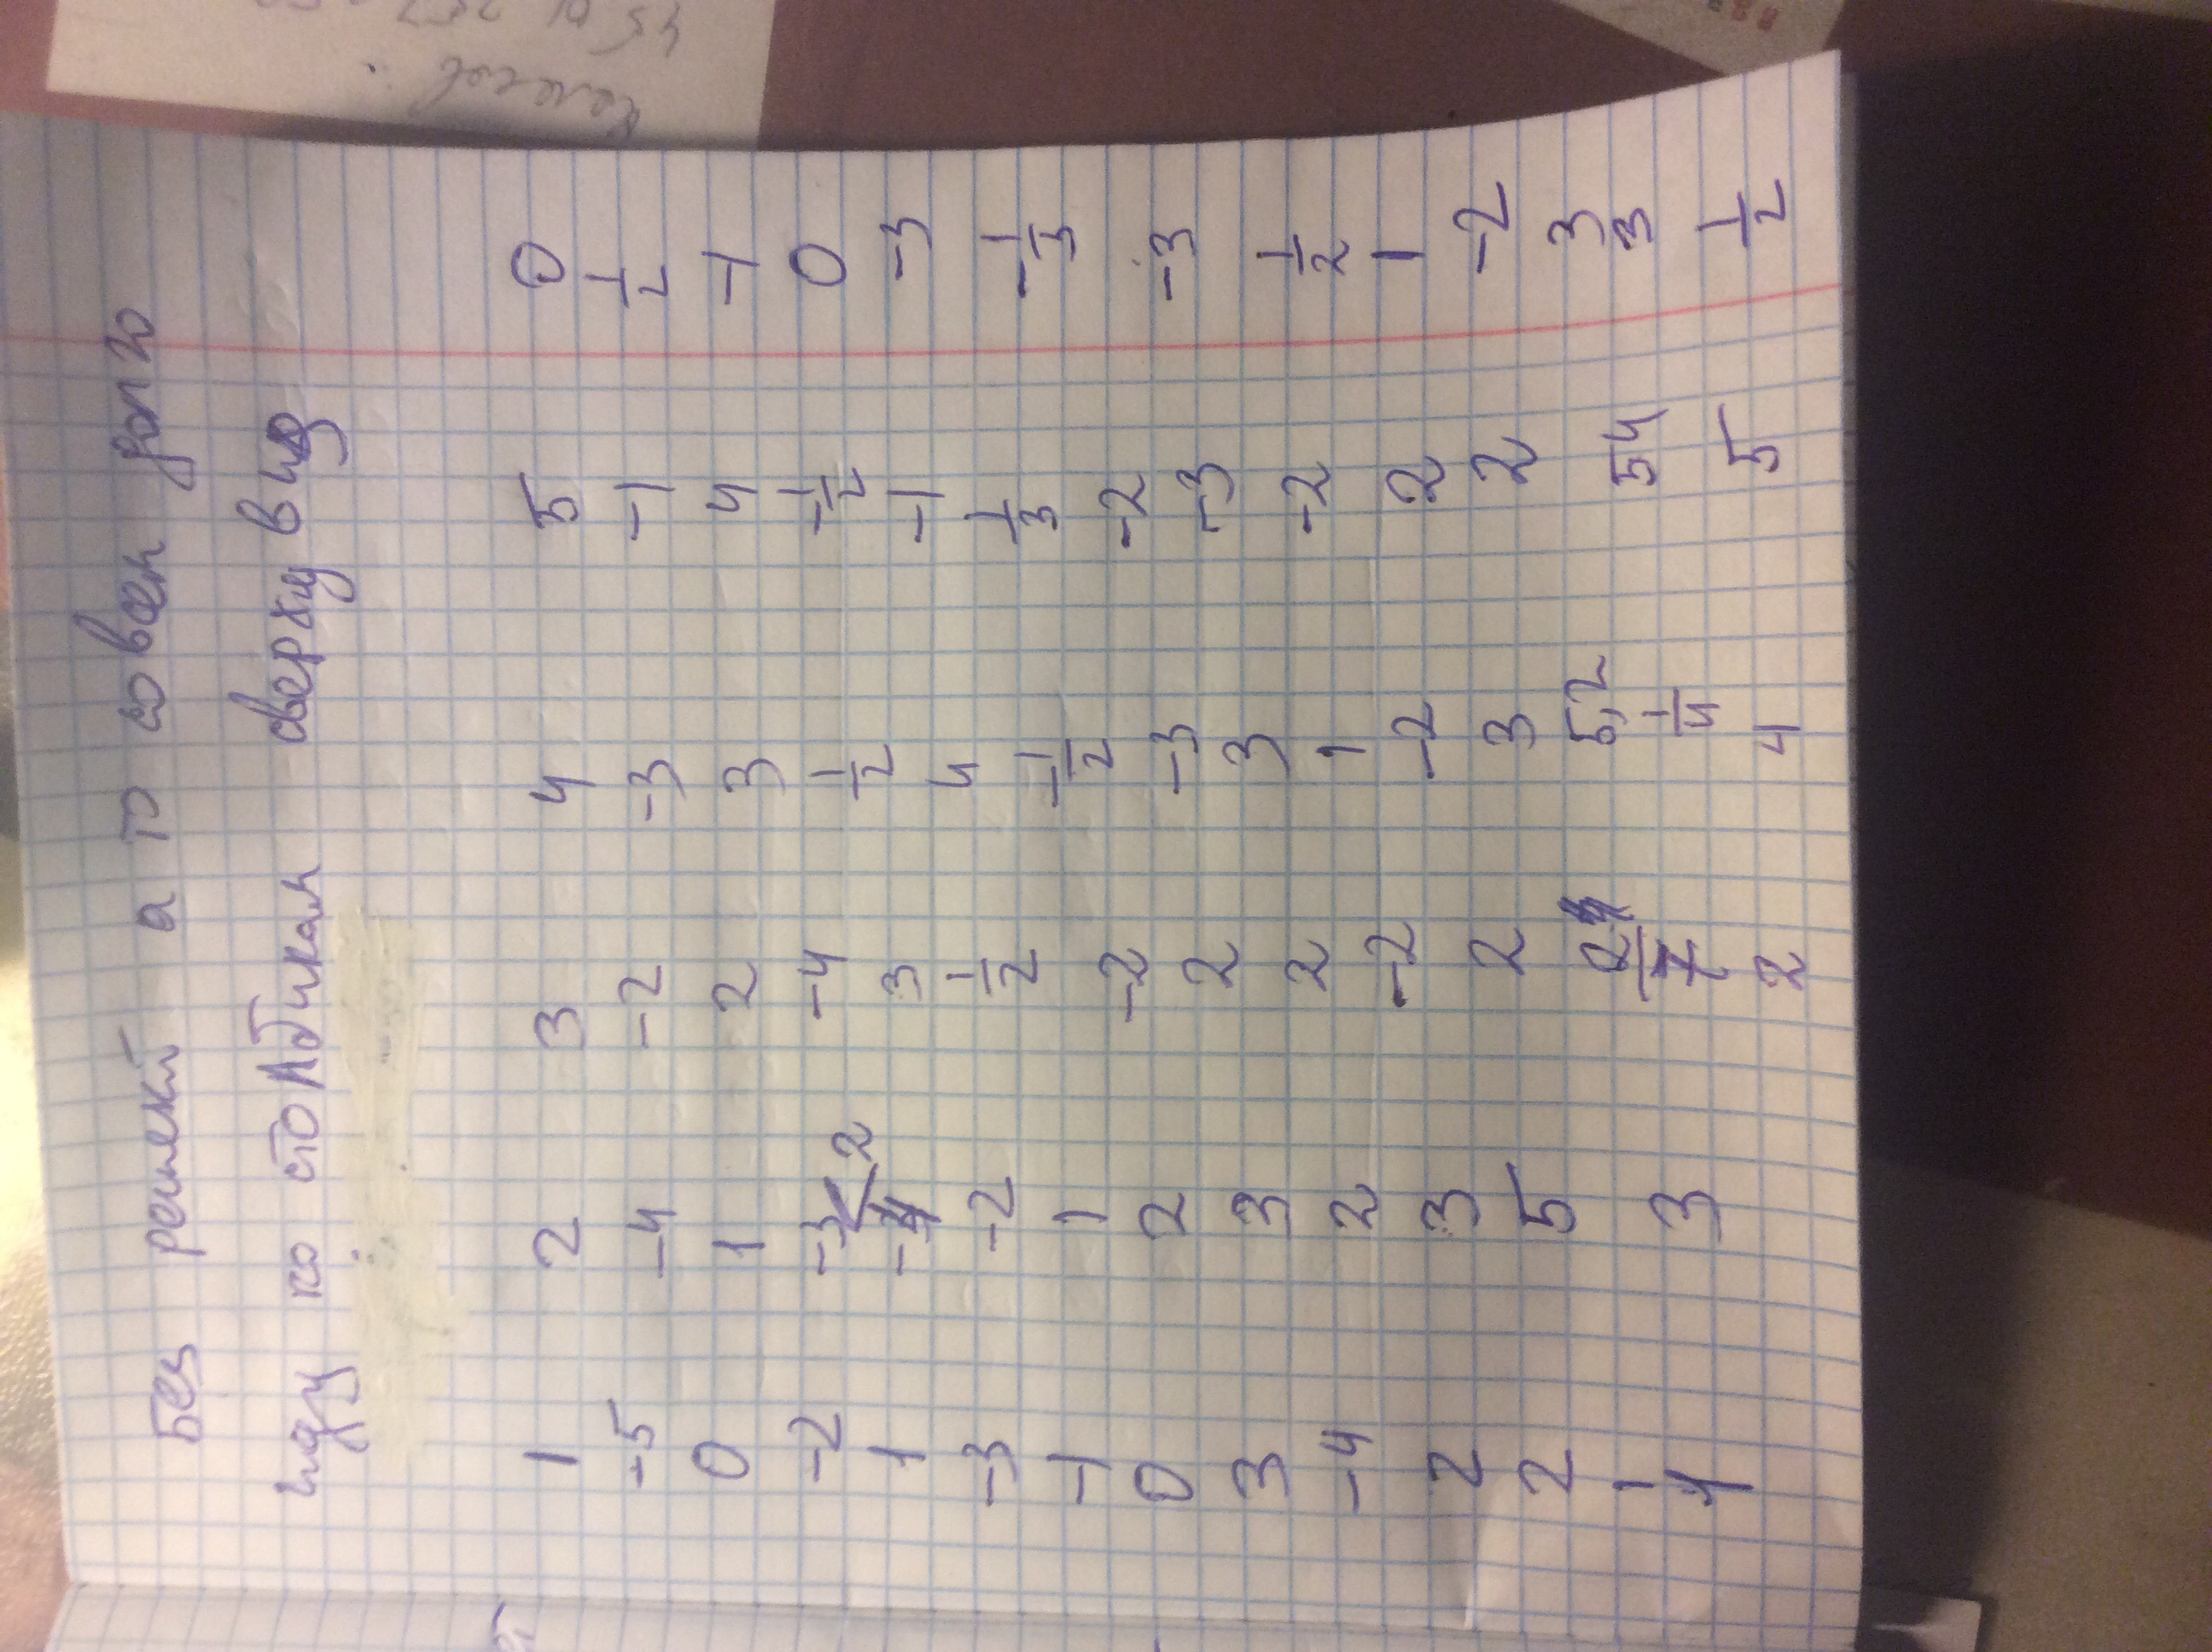 Без решений а то совсем долго
иду по столбикам сверху вниз
1 2 3 4 5 0
-5 -4 -2 -3 -1 1/2
0 1 2 3 4 -1
-2 -3 -4 1/2 -1/2 0
1 2 3 4 -1 -3
-3 -2 1/2 -1/2 1/3 -1/3
-1 1 -2 -3 -2 -3
0 2 2 3 -3 1/2
3 3 2 1 -2 1
-4 2 -2 -2 2 -2
2 3 2 3 2 3
2 5 5,2 54 3
1 3 1/4 5 1/2
4 2 4